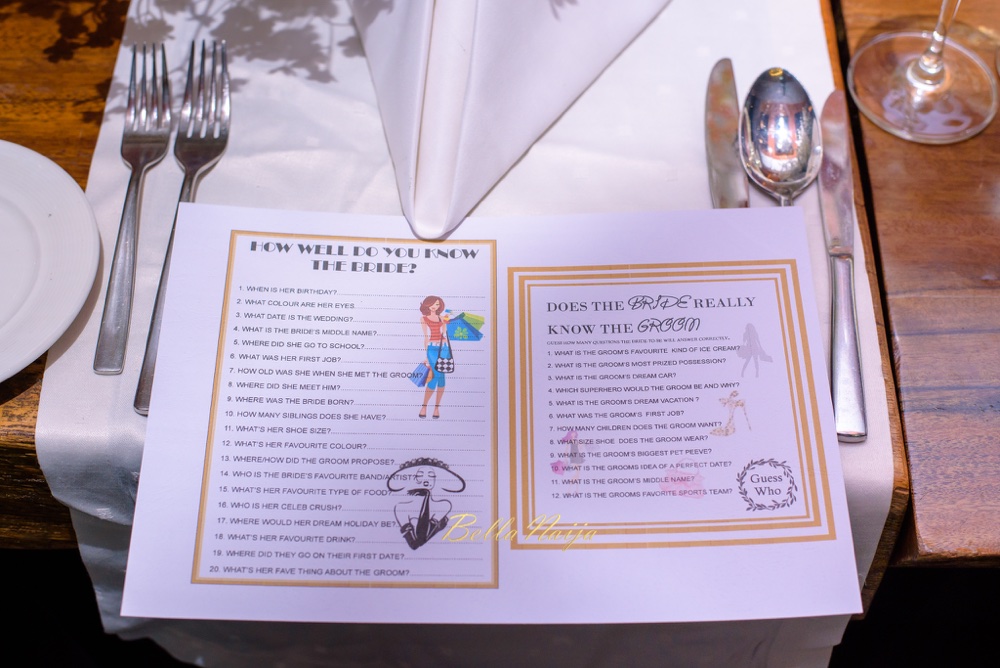 HOW WELL DO YOU KNOW
THE BRIDE?
1. WHEN IS HER BIRTHDAY?
2. WHAT COLOUR ARE HER EYES
3. WHAT DATE IS THE WEDDING?
4. WHAT IS THE BRIDE'S MIDDLE NAME?
5. WHERE DID SHE GO TO SCHOOL?
6. WHAT WAS HER FIRST JOB?
7. HOW OLD WAS SHE WHEN SHE MET THE GROOM?
8. WHERE DID SHE MEET HIM?
9. WHERE WAS THE BRIDE BORN?
10. HOW MANY SIBLINGS DOES SHE HAVE?
11. WHAT'S HER SHOE SIZE?
12. WHAT'S HER FAVOURITE COLOUR?
13. WHERE/HOW DID THE GROOM PROPOSE?
14. WHO IS THE BRIDE'S FAVOURITE BAND/ARTIST?
15. WHAT'S HER FAVOURITE TYPE OF FOOD?
16. WHO IS HER CELEB CRUSH?
17. WHERE WOULD HER DREAM HOLIDAY BE?
18. WHAT'S HER FAVOURITE DRINK?
19. WHERE DID THEY GO ON THEIR FIRST DATE?
20. WHAT'S HER FAVE THING ABOUT THE GROOM?
DOES THE BRIDE REALLY
KNOW THE GROOM
GUESS HOW MANY QUESTIONS THE BRIDE TO BE WILL ANSWER CORRECTLY.
1. WHAT IS THE GROOM'S FAVOURITE KIND OF ICE CREAM?
2. WHAT IS THE GROOM'S MOST PRIZED POSSESSION?
3. WHAT IS THE GROOM'S DREAM CAR?
4. WHICH SUPERHERO WOULD THE GROOM BE AND WHY?
5. WHAT IS THE GROOM'S DREAM VACATION ?
6. WHAT WAS THE GROOM'S FIRST JOB?
7. HOW MANY CHILDREN DOES THE GROOM WANT?
8. WHAT SIZE SHOE DOES THE GROOM WEAR?
9. WHAT IS THE GROOM'S BIGGEST PET PEEVE?
10. WHAT IS THE GROOMS IDEA OF A PERFECT DATE?
11. WHAT IS THE GROOM'S MIDDLE NAME?
12. WHAT IS THE GROOMS FAVORITE SPORTS TEAM?
Guess
Who
Bella Naija